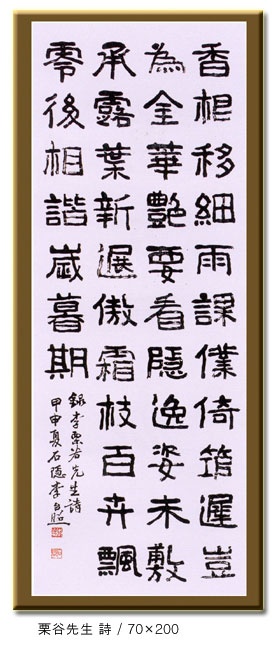 香根移細雨課僕倚筇遲豈
為金華艷要看隱逸姿未敷
承露葉新選傲霜枝百卉飄
零後相諧歲暮期
錄李栗谷先生詩
甲申夏石隱李
栗谷先生 詩 / 70×200